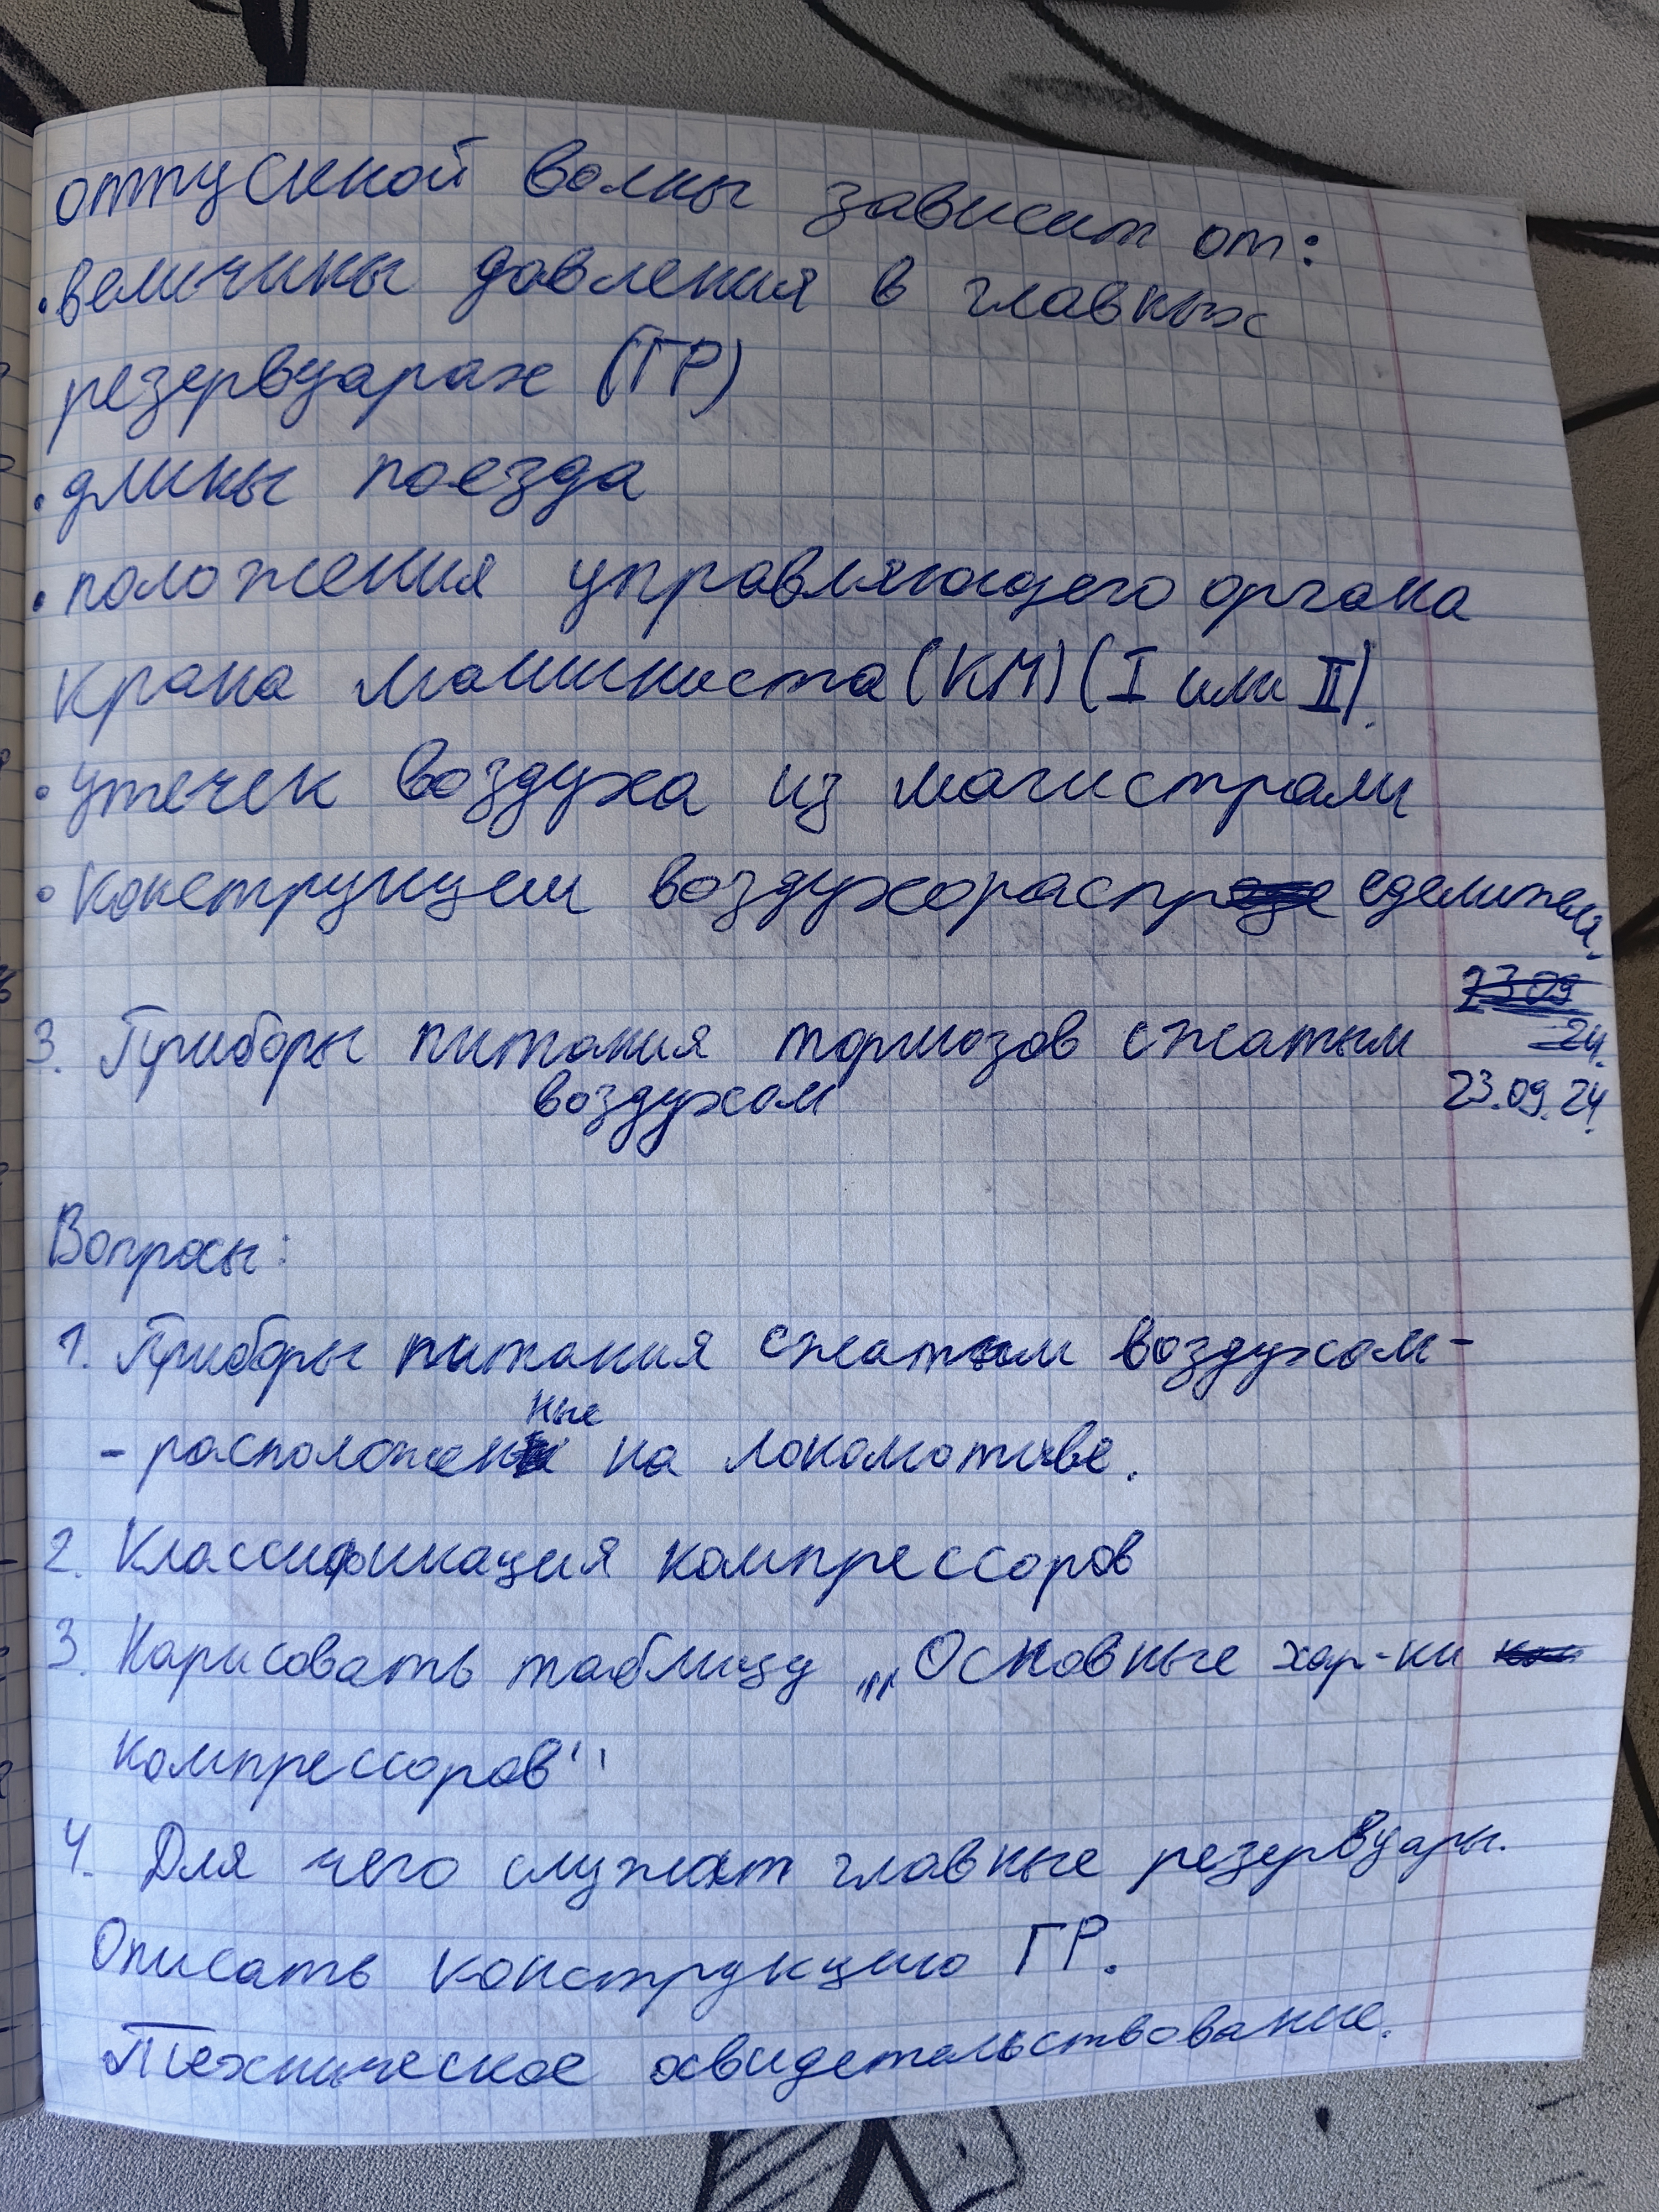 отпускной волны зависит от:
• величины давления в главных
резервуарах (ГР)
• длины поезда
• положения управляющего органа
крана машиниста (КМ) (I или II).
• утечек воздуха из магистрали
• конструкции воздухораспределителя.
3. Приборы питания тормозов сжатым
воздухом
23.09.24.
Вопросы:
1. Приборы питания сжатым воздухом -
- расположенные на локомотиве.
2. Классификация компрессоров
3. Нарисовать таблицу „Основные хар-ки
компрессоров"
4. Для чего служат главные резервуары.
Описать конструкцию ГР.
Техническое освидетельствование.